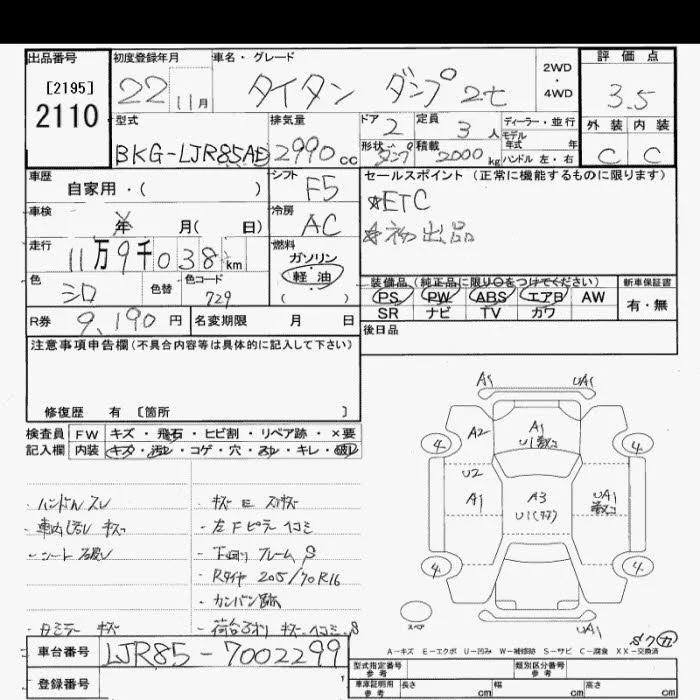 出品番号 初度登録年月 車名・グレード 評価点
[2195]
2110
22 11月 タイタン ダンプ 2t 2WD・4WD 3.5
型式 排気量 ドア 定員 ディーラー・並行 外装 内装
BKG-LJR85AD 2990cc 2 3人 モデル年式 年 C C
形状 ダンプ 積載 2000kg ハンドル 左・右
車歴 シフト セールスポイント(正常に機能するものに限ります)
自家用・( ) F5 ☆ETC
車検 年 月( 日) 冷房 AC ☆初出品
走行 燃料
11万9千038km ガソリン
軽油
( )
色 色替 色コード 装備品(純正品に限り○をつけてください) 新車保証書
シロ 729 PS PW ABS エアB AW 有・無
SR ナビ TV カワ
R券 9,190円 名変期限 月 日 後日品
注意事項申告欄(不具合内容等は具体的に記入して下さい)
修復歴 有 [箇所 ]
検査員 FW キズ・飛石・ヒビ割・リペア跡・×要
記入欄 内装 キズ・汚レ・コゲ・穴・スレ・キレ・破レ
・ハンドルスレ ・キズ
・車内 キズ ・左Fピラー ヘコミ
・シート破レ ・下回り フレーム S
・Rタイヤ 205/70R16
・カンバン跡
キズ 荷台 キズ、ヘコミ、S
A1 UA1
4 A2 A1 4
U2
A1 A3 UA1
4 4
スペア
UA1
A-キズ E-エクボ U-凹み W-補修跡 S-サビ C-腐食 XX-交換済
車台番号 LJR85-7002299
型式指定番号 参考 類別区分番号 参考
登録番号 車庫証明用 参考 長さ cm 幅 cm 高さ cm